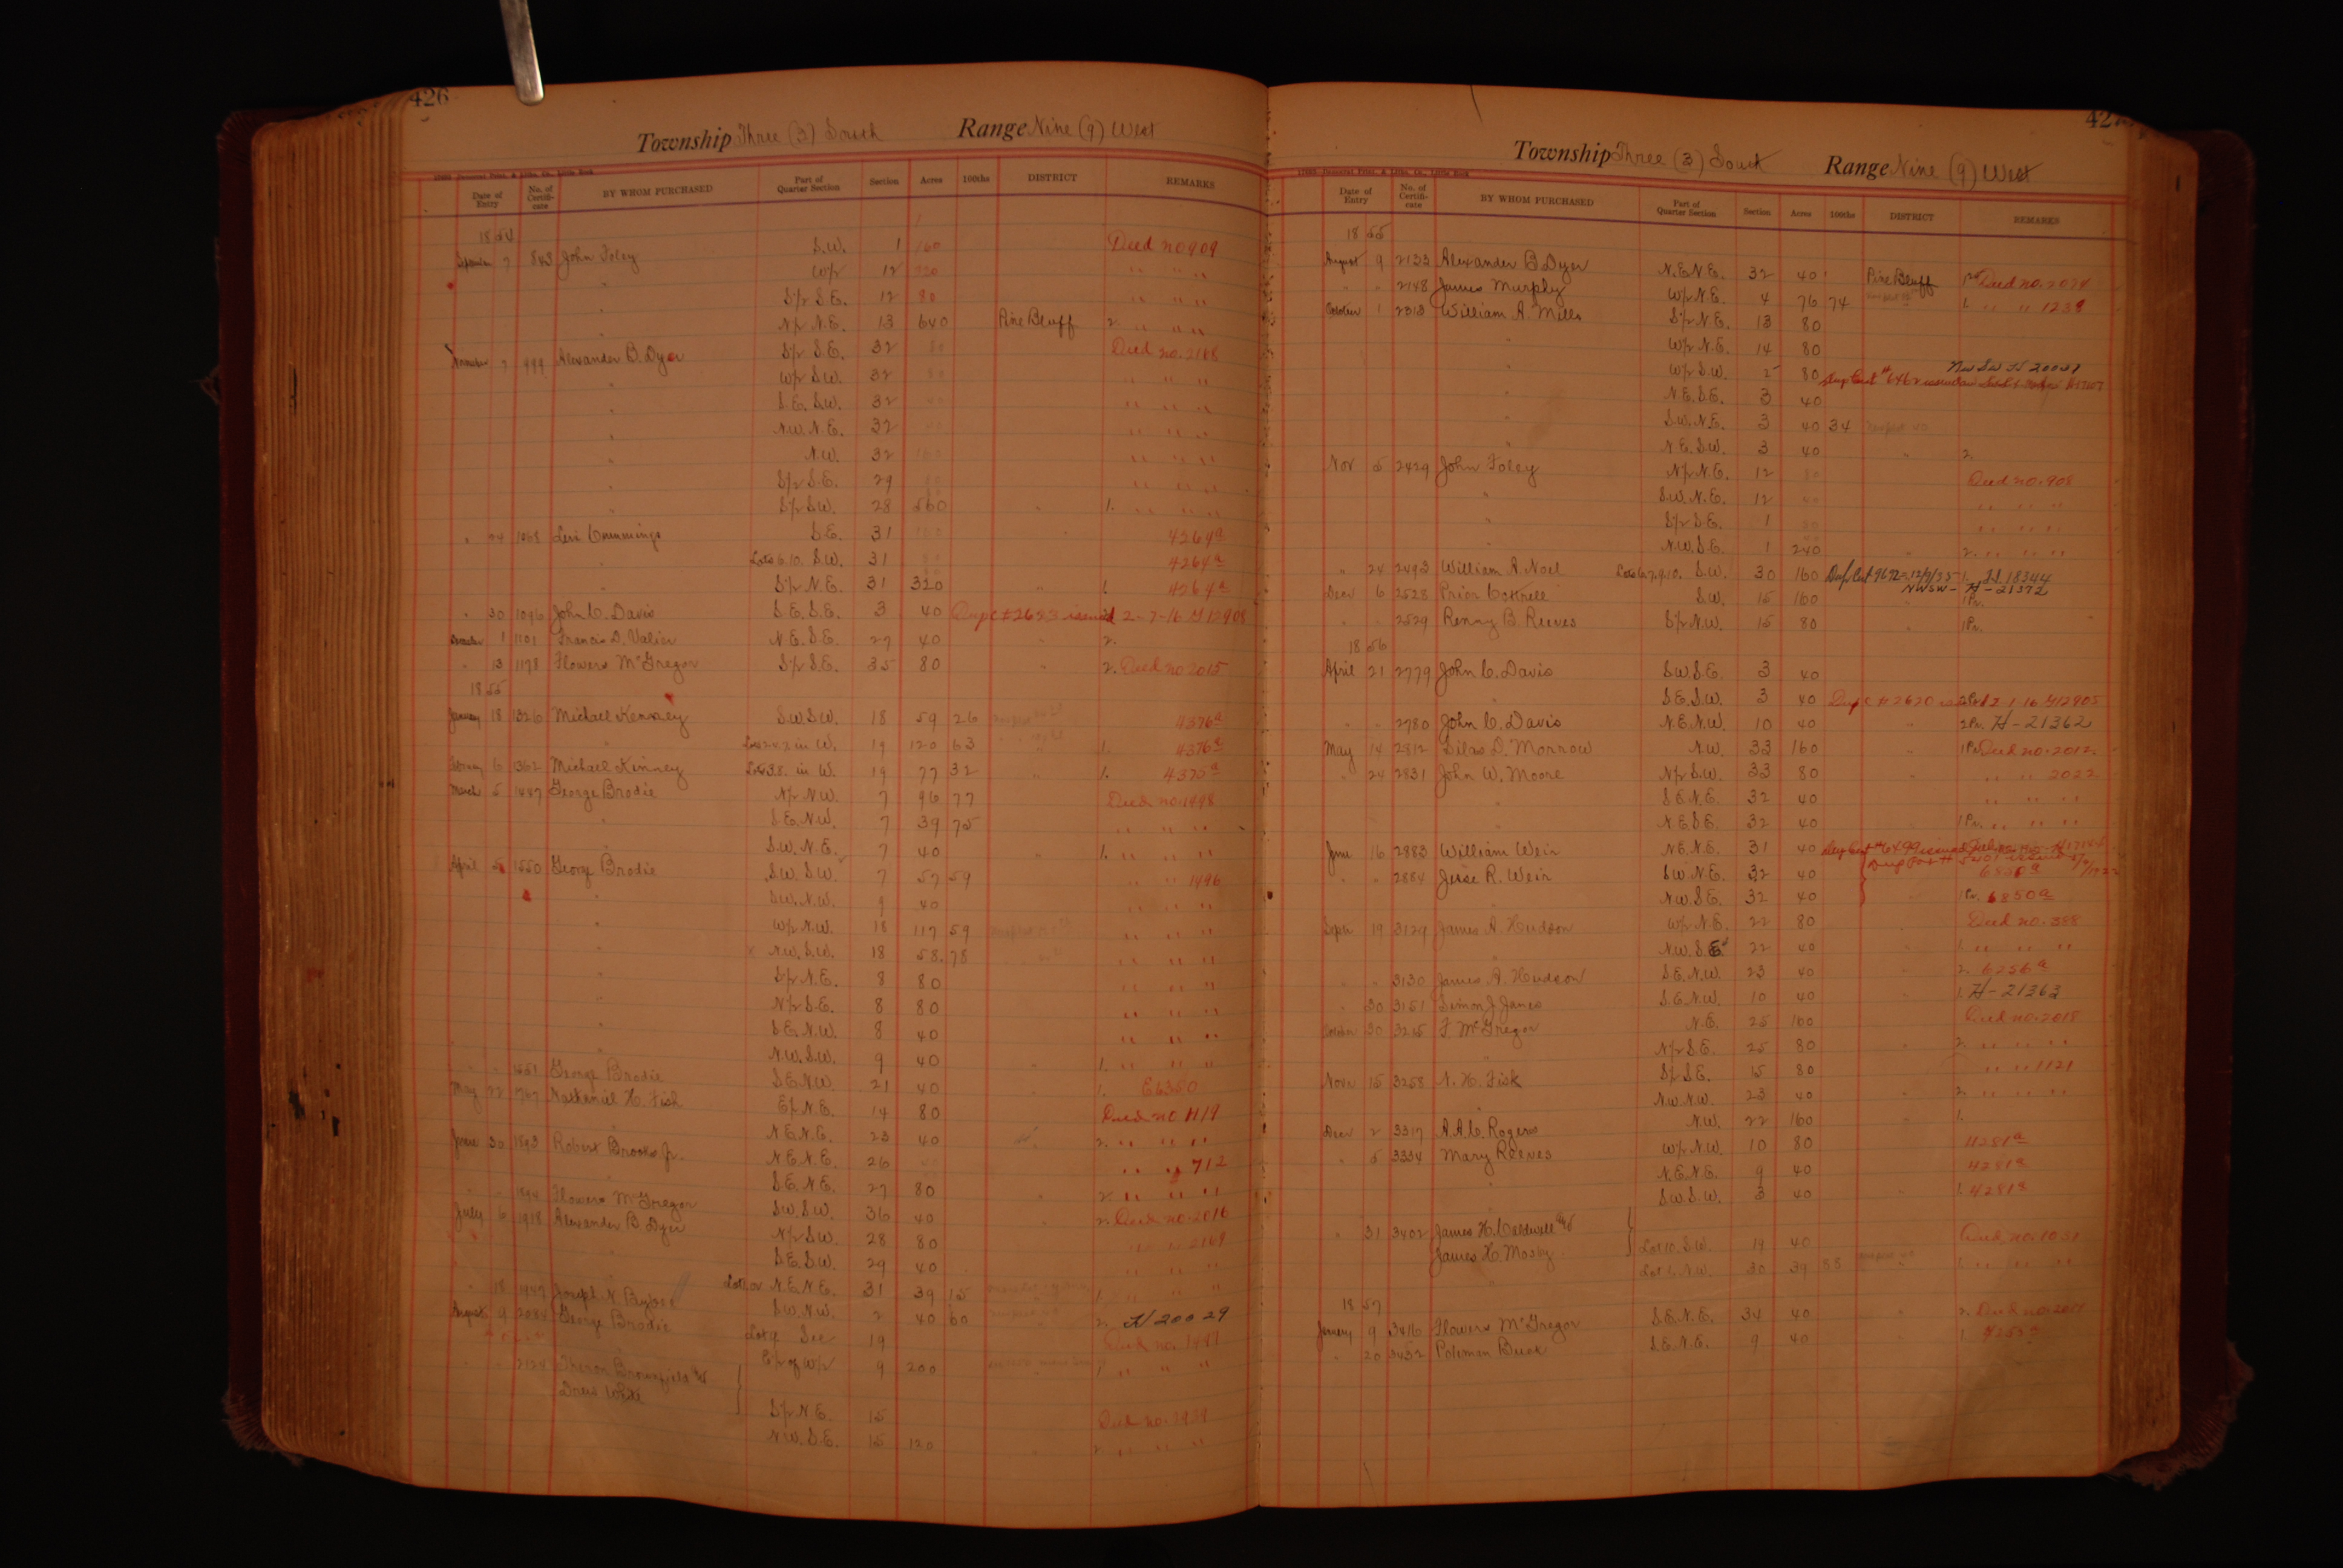 426
Township Three (3) South Range Nine (9) West
Date of Entry No. of Certifi-cate BY WHOM PURCHASED Part of Quarter Section Section Acres 100ths DISTRICT REMARKS
1854
7 John Foley S.W. 1 160 Deed no 909
" W½ 12 320 " " "
" S½ S.E. 12 80 " " "
" N½ N.E. 13 640 Pine Bluff 2. " " "
November 7 999 Alexander B. Dyer S½ S.E. 32 80 Deed no. 2168
" W½ S.W. 32 80 " " "
" S.E. S.W. 32 40 " " "
" N.W. N.E. 32 40 " " "
" N.W. 32 160 " " "
" S½ S.E. 29 " " "
" S½ S.W. 28 560 " 1. " " "
" 24 1068 Levi Cummings S.E. 31 160 4264a
Lots 6.10. S.W. 31 4264a
" S½ N.E. 31 320 " 1. 4264a
" 30 1096 John C. Davis S.E. S.E. 3 40 Dup C # 2623 issued 2-7-16 H 12908
December 1 1101 Francis D. Valier N.E. S.E. 27 40 " 2.
" 13 1178 Flowers McGregor S½ S.E. 35 80 " 2. Deed no 2015
1855
January 18 1326 Michael Kenney S.W. S.W. 18 59 26 4376a
" in W. 19 120 63 " 1. 4376a
February 6 1362 Michael Kinney Lots 3.8. in W. 19 77 32 " 1. 4375a
March 5 1447 George Brodie N½ N.W. 7 96 77 Deed no. 1498
" S.E. N.W. 7 39 75 " " "
" S.W. N.E. 7 40 " 1. " " "
April 5 1550 George Brodie S.W. S.W. 7 57 59 " " 1496
" S.W. N.W. 9 40 " " "
" W½ N.W. 18 117 59 " " "
" N.W. S.W. 18 58.78 " " "
" S½ N.E. 8 80 " " "
" N½ S.E. 8 80 " " "
" S.E. N.W. 8 40 " " "
" N.W. S.W. 9 40 " 1. " " "
" " 1551 George Brodie S.E. N.W. 21 40 " 1. E6350
May 22 1767 Nathaniel H. Fish E½ N.E. 14 80 Deed no 1119
N.E. N.E. 23 40 " 2. " " "
June 30 1893 Robert Brooks Jr. N.E. N.E. 26 " " 712
" S.E. N.E. 27 80 " 2. " " "
" " 1894 Flowers McGregor S.W. S.W. 36 40 " 2. Deed no. 2016
July 6 1918 Alexander B. Dyer N½ S.W. 28 80 " " 2169
" S.E. S.W. 29 40 " " "
" 18 1947 Joseph N. N.E. N.E. 31 39 15 1. " "
August 9 2084 George Brodie S.W. N.W. 2 40 60 2. H 20029
Lot 9 Sec 19 Deed no. 1497
" " 2124 Theron Brownfield and E½ of W½ 9 200 1 " " "
Drew White
S½ N.E. 15 Deed no. 2929
N.W. S.E. 15 120 " 2. " " "
427
Township Three (3) South Range Nine (9) West
Date of Entry No. of Certifi-cate BY WHOM PURCHASED Part of Quarter Section Section Acres 100ths DISTRICT REMARKS
1855
August 9 2133 Alexander B Dyer N.E. N.E. 32 40 Pine Bluff Deed no. 2074
" " 2148 James Murphy W½ N.E. 4 76 74 1. " " 1238
October 1 2313 William A. Mills S½ N.E. 13 80
" W½ N.E. 14 80
" W½ S.W. 2 80 NW SW H 20037
Dup Cert # 6462
" N.E. S.E. 3 40
" S.W. N.E. 3 40 34
" N.E. S.W. 3 40 " 2.
Nov 5 2429 John Foley N½ N.E. 12 80 Deed no. 908
" S.W. N.E. 12 40 " " "
" S½ S.E. 1 80 " " "
" N.W. S.E. 1 240 " 2. " " "
" 24 2493 William A. Noel Lots 6.7.9.10. S.W. 30 160 Dup Cert 9672 12/9/35 1. H 18344
NWSW - H - 21372
Decr 6 2528 Prior Cottrell S.W. 15 160 " 1 Pr.
" " 2529 Renny B Reeves S½ N.W. 15 80 " 1 Pr.
1856
April 21 2779 John C. Davis S.W. S.E. 3 40
" S.E. S.W. 3 40 Dup C # 2620 H12905
" " 2780 John C. Davis N.E. N.W. 10 40 " 2 Pr. H - 21362
May 14 2812 Silas D. Morrow N.W. 33 160 " 1 Pr. Deed no. 2012.
" 24 2831 John W. Moore N½ S.W. 33 80 " " 2022
" S.E. N.E. 32 40 " " "
" N.E. S.E. 32 40 " 1 Pr. " " "
June 16 2883 William Weir N.E. N.E. 31 40 Dup Cert # 6499
" " 2884 Jesse R. Weir S.W. N.E. 32 40 6850a
N.W. S.E. 32 40 " 1 Pr. 6850a
Sept 19 3129 James A. Hudson W½ N.E. 22 80 Deed no. 388
" N.W. S.E. 22 40 " 1. " " "
" " 3130 James A. Hudson S.E. N.W. 23 40 " 2. 6256a
" 30 3151 Simon J. Janes S.E. N.W. 10 40 " 1. H - 21363
October 30 3235 F. McGregor N.E. 25 160 Deed no. 2015
" N½ S.E. 25 80 " 2. " " "
Novr 15 3258 N. H. Fisk S½ S.E. 15 80 " " 1121
" N.W. N.W. 23 40 " 2. " " "
Decr 2 3317 A.A.C. Rogers N.W. 22 160 " 1.
" 5 3334 Mary Reeves W½ N.W. 10 80 4281a
" N.E. N.E. 9 40 4281a
" S.W. S.W. 3 40 " 1. 4281a
" 31 3402 James H. Caldwell and
James H. Mosby Lot 10. S.W. 19 40 Deed no. 1031
" Lot 1. N.W. 30 39 88 1. " " "
1857
January 9 3416 Flowers McGregor S.E. N.E. 34 40 " 2. Deed no.
" 20 3432 Potiman Buck S.E. N.E. 9 40 " 1.